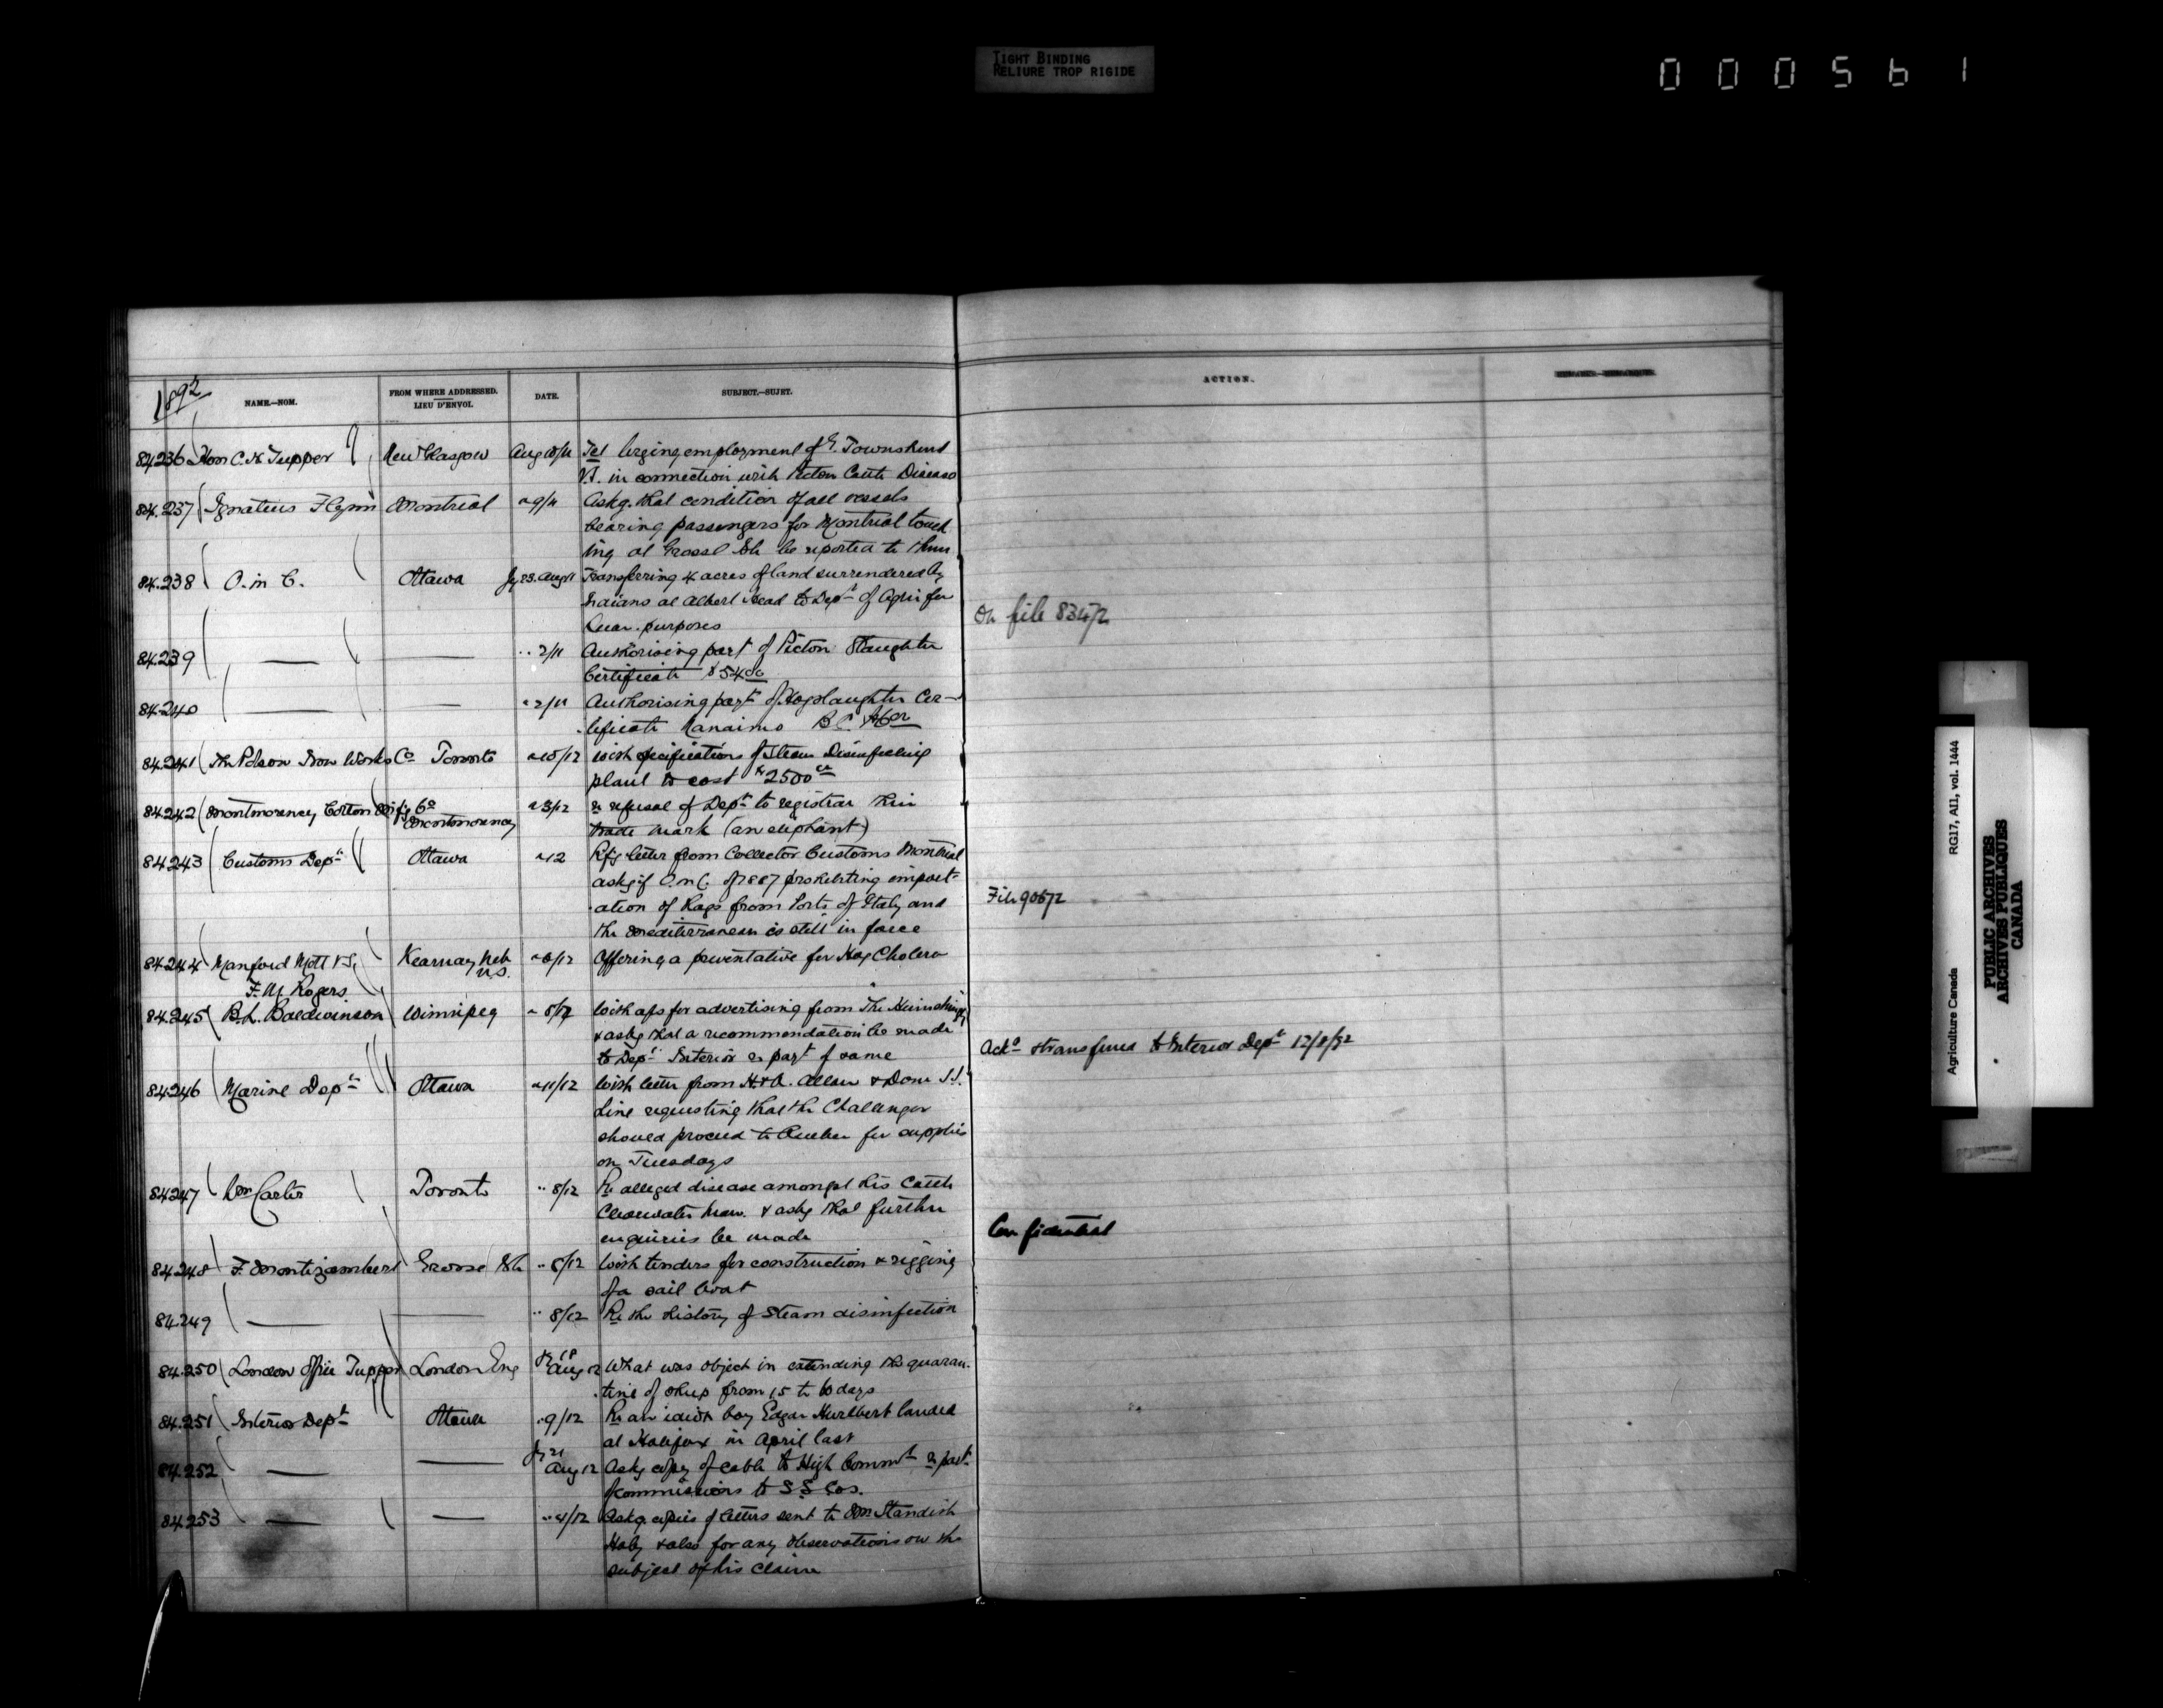 TIGHT BINDING
RELIURE TROP RIGIDE
0 0 0 5 6 1
1892
NAME.—NOM.
FROM WHERE ADDRESSED.
LIEU D'ENVOI.
DATE.
SUBJECT.—SUJET.
ACTION.
84236 Hon C. H Tupper New Glasgow Aug 10/11 Tel urging employment of Townshend
V.S. in connection with Pictou Cattle Disease
84.237 Ignatius Flynn Montreal " 9/11 Askg. that condition of all vessels
bearing passengers for Montreal touch
ing at Grosse Isle be reported to them
84.238 O. in C. Ottawa Jy 23. Aug 11 Transferring 4 acres of land surrendered by
Indians at Albert Head to Dept of Agri for
Quar. purposes
On file 83472
84.239 — — " 2/11 Authorising payt of Pictou Slaughter
Certificate $54
84.240 — — " 2/11 Authorising payt of Hog slaughter Cer-
tificate Nanaimo B.C.
84.241 The Polson Iron Works Co Toronto " 10/12 With specifications of Steam Disinfecting
plant to cost $2500
84242 Montmorency Cotton Mfg Co
Montmorency " 3/12 re refusal of Dept to register their
trade mark (an elephant)
84243 Customs Dept Ottawa " 12 Rfg letter from Collector Customs Montreal
askg if O. in C. of 1887 prohibiting import-
ation of Rags from Ports of Italy and
the Mediterranean is still in force
File 90672
84.244 Manford Mott V.S. Kearney Neb " 8/12 Offering a preventative for Hog Cholera
U.S.
F. M. Rogers
84.245 B. L. Baldwinson Winnipeg " 8/12 With a/cs for advertising from The
& askg that a recommendation be made
to Dept Interior re payt of same
Ackd & transferred to Interior Dept 12/8/92
84.246 Marine Dept Ottawa " 11/12 With letter from H. & A. Allan & Dom S.S.
Line requesting that the Challenger
should proceed to Quebec for supplies
on Tuesdays
84247 Wm Carter Toronto " 8/12 Re alleged disease amongst his Cattle
Clearwater Man. & askg that further
enquiries be made
Confidential
84.248 F. Montizambert Grosse Isle " 8/12 With tenders for construction & rigging
of a sail boat
84.249 — — " 8/12 Re the history of Steam disinfection
84.250 London Office Tupper London Eng Jy 18
Aug 12 What was object in extending the quaran-
tine of sheep from 15 to 60 days
84.251 Interior Dept Ottawa " 9/12 Re an idiot boy Edgar Hurlbert landed
at Halifax in April last
84.252 — — Jy 21
Aug 12 Askg copy of cable to High Commr re payt
of commissions to S.S Cos.
84.253 — — " 4/12 Askg. copies of letters sent to Standish
Haly & also for any observations on the
subject of his claim
Agriculture Canada RG17, AII, vol. 1444
PUBLIC ARCHIVES
ARCHIVES PUBLIQUES
CANADA